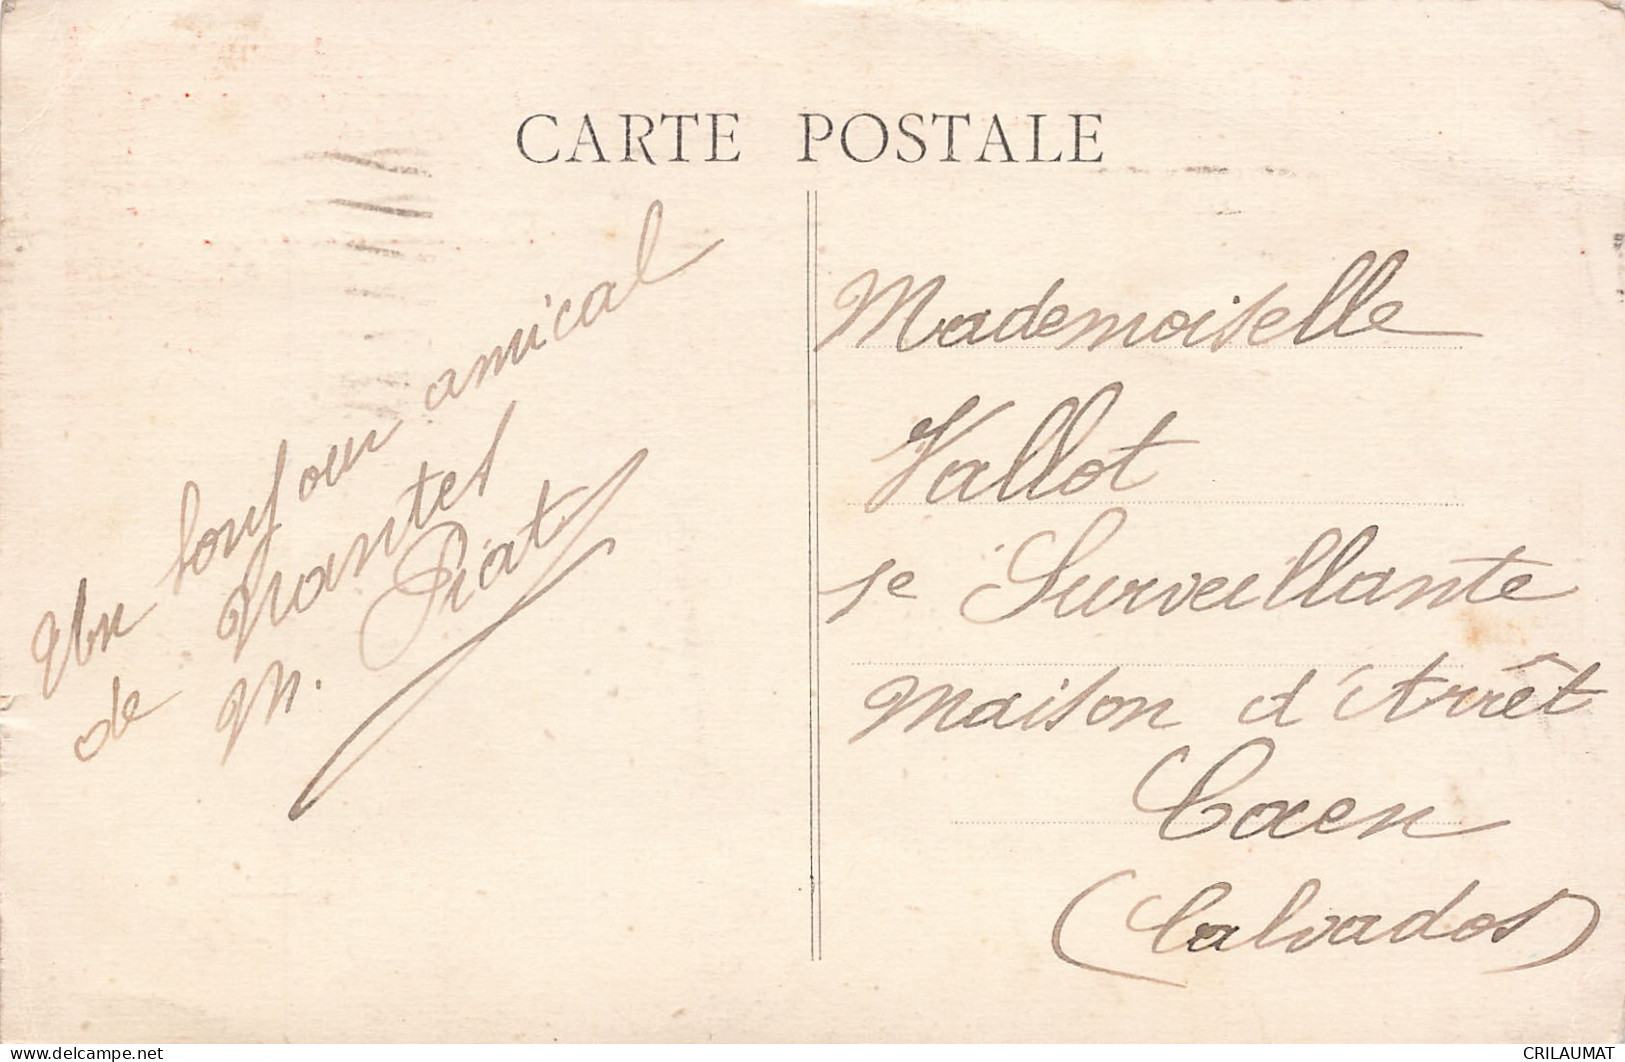 CARTE POSTALE
Un bonjour amical
de Nantes
M. Piat
Mademoiselle
Vallot
se Surveillante
Maison d'Arrêt
Caen
(Calvados)
www.delcampe.net
CRILAUMAT